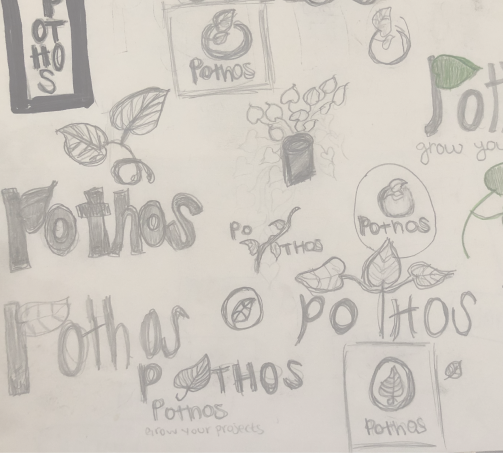 P
OT
HO
S
Pothos
Pot
grow you
Pothos
Po THOS
Pothos
Pothos
PO THOS
P THOS
Pothos
Grow your projects
Pothos